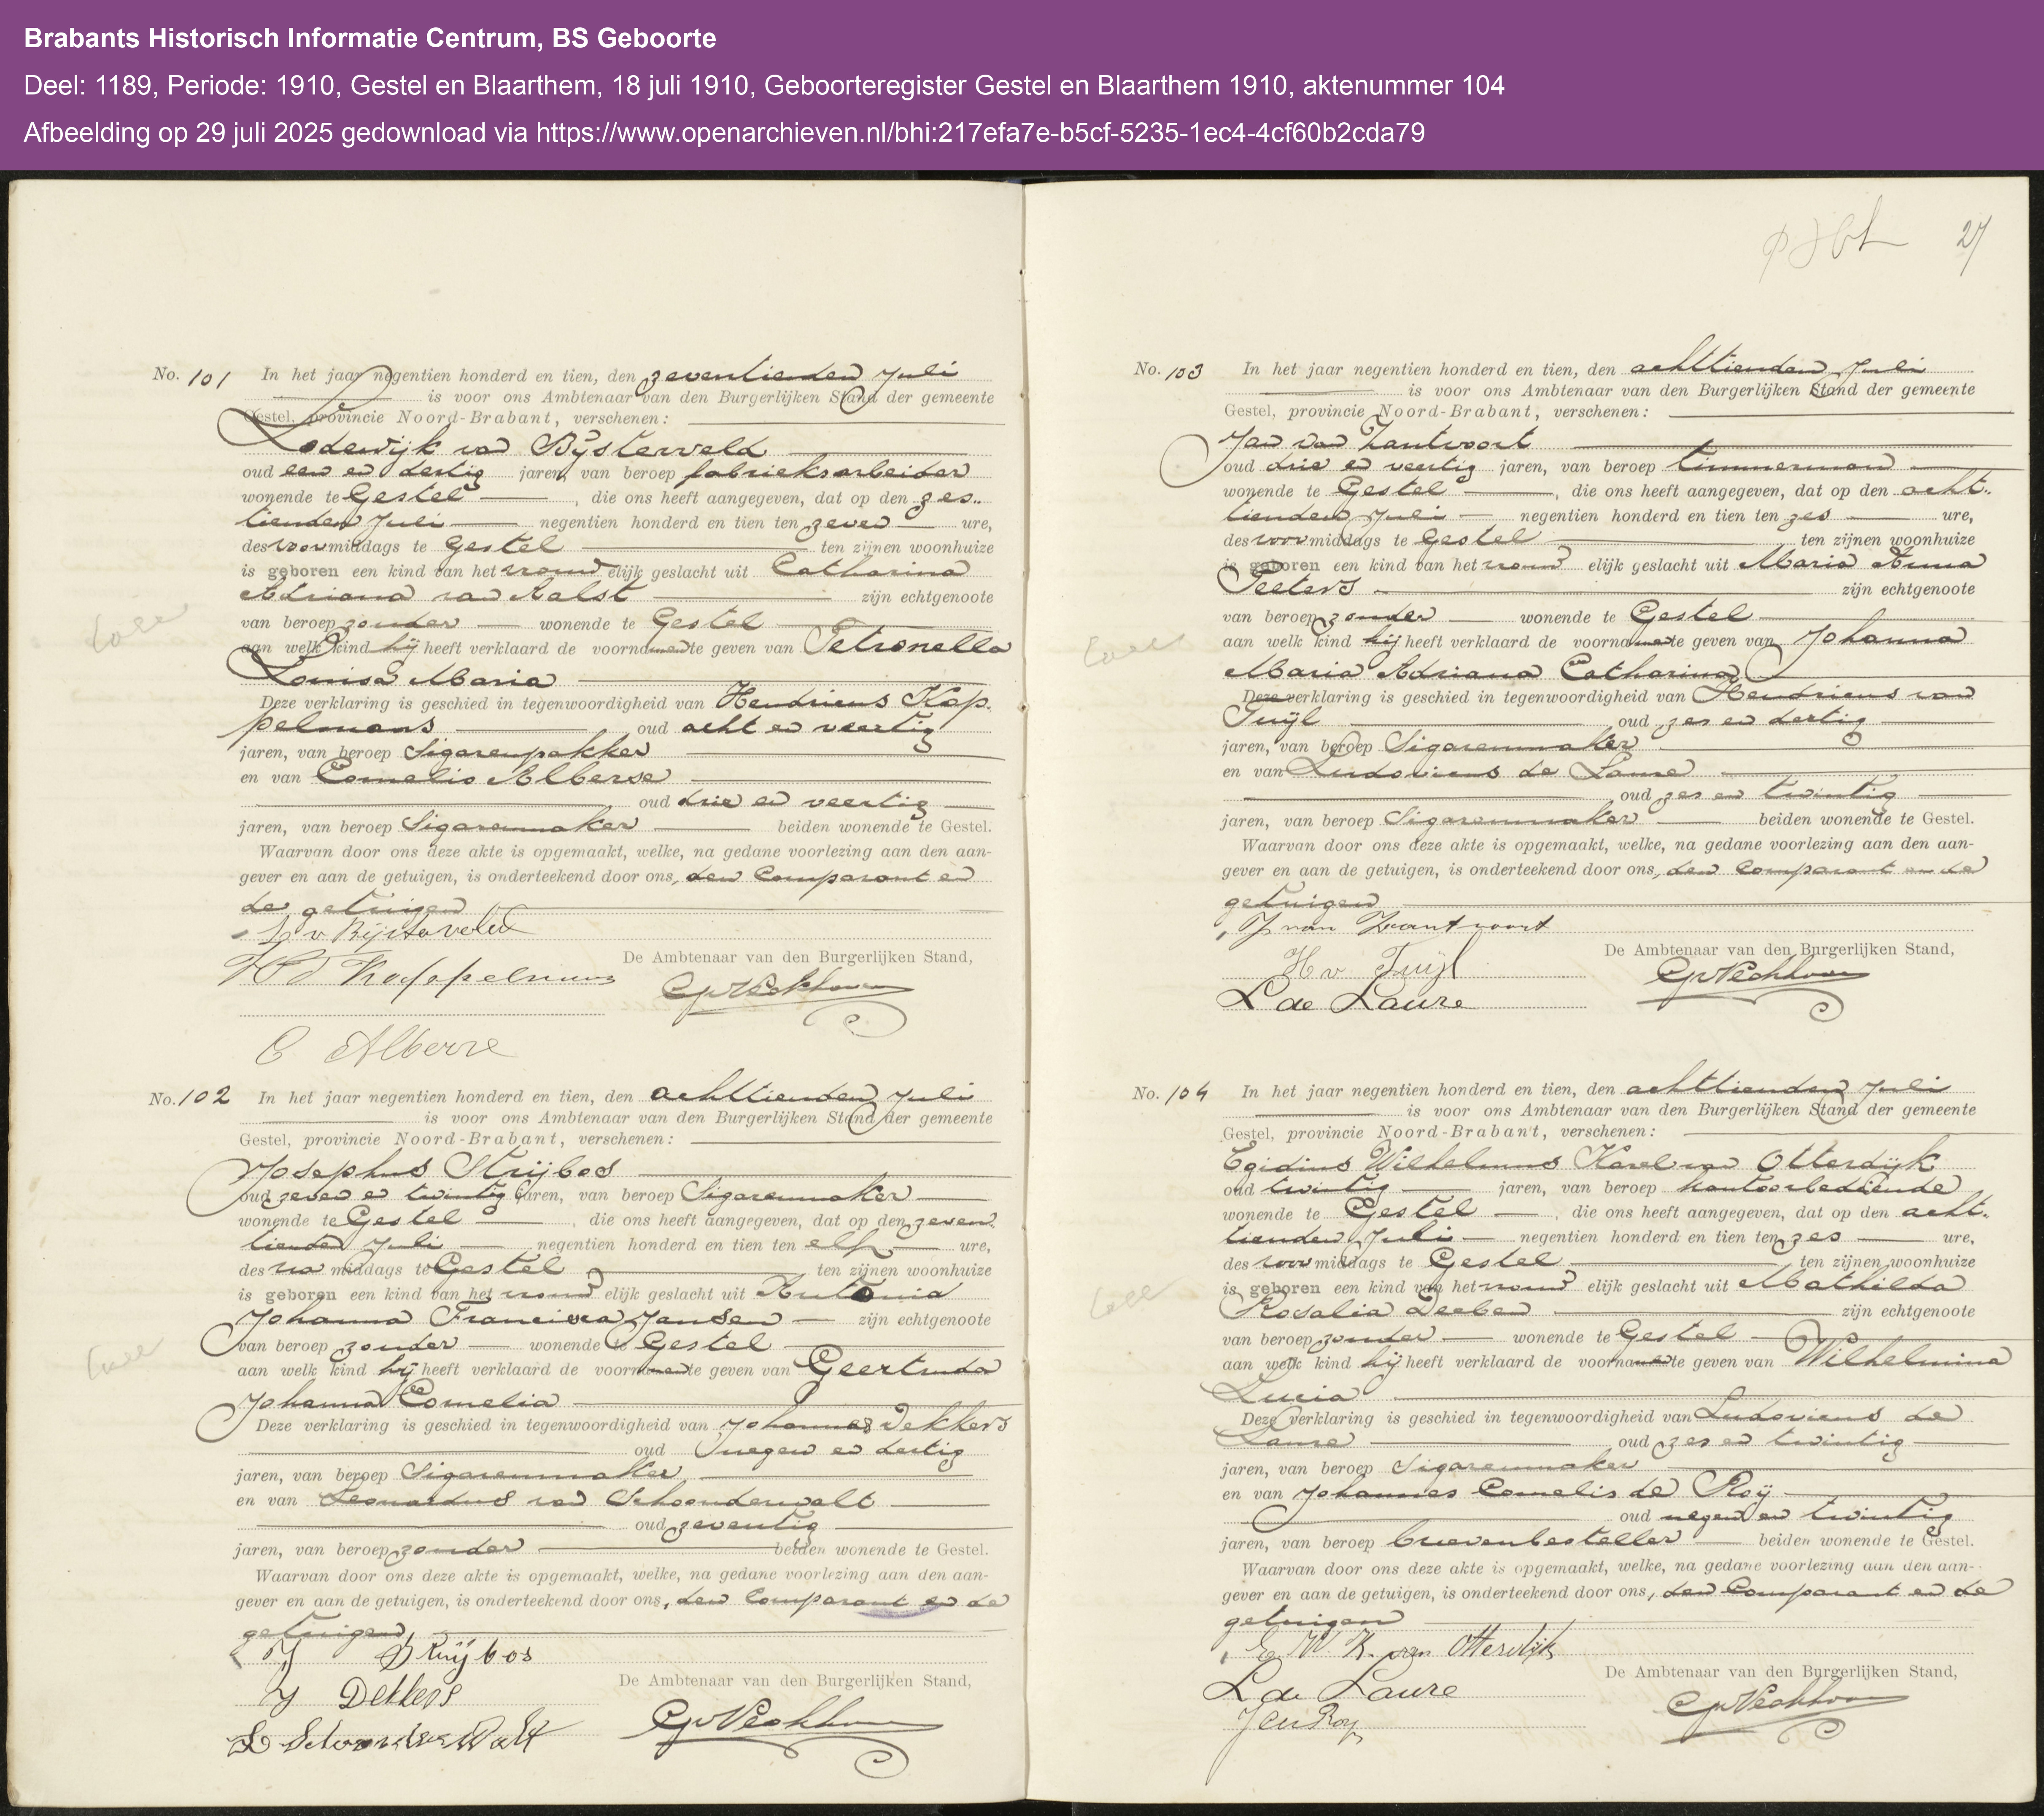 Brabants Historisch Informatie Centrum, BS Geboorte
Deel: 1189, Periode: 1910, Gestel en Blaarthem, 18 juli 1910, Geboorteregister Gestel en Blaarthem 1910, aktenummer 104
Afbeelding op 29 juli 2025 gedownload via https://www.openarchieven.nl/bhi:217efa7e-b5cf-5235-1ec4-4cf60b2cda79
No. 101 In het jaar negentien honderd en tien, den zeventienden Juli
is voor ons Ambtenaar van den Burgerlijken Stand der gemeente
Gestel, provincie Noord-Brabant, verschenen:
Lodewijk van Bijsterveld
oud een en dertig jaren, van beroep fabrieksarbeider
wonende te Gestel, die ons heeft aangegeven, dat op den zes..
tienden Juli negentien honderd en tien ten zeven ure,
des voormiddags te Gestel ten zijnen woonhuize
is geboren een kind van het vrouwelijk geslacht uit Catharina
Adriana van Aalst zijn echtgenoote
van beroep zonder wonende te Gestel
aan welk kind hij heeft verklaard de voornamen te geven van Petronella
Louisa Maria
Deze verklaring is geschied in tegenwoordigheid van Hendricus Kop.
pelmans oud acht en veertig
jaren, van beroep Sigarenpakker
en van Cornelis Alberse
oud drie en veertig
jaren, van beroep Sigarenmaker beiden wonende te Gestel.
Waarvan door ons deze akte is opgemaakt, welke, na gedane voorlezing aan den aan-
gever en aan de getuigen, is onderteekend door ons, den Comparant en
de getuigen
L v Bijsterveld
Hd Koppelmans
De Ambtenaar van den Burgerlijken Stand,
C Alberse
No. 102 In het jaar negentien honderd en tien, den achttienden Juli
is voor ons Ambtenaar van den Burgerlijken Stand der gemeente
Gestel, provincie Noord-Brabant, verschenen:
Josephus Strijbos
oud zeven en twintig jaren, van beroep Sigarenmaker
wonende te Gestel, die ons heeft aangegeven, dat op den zeven
tienden Juli negentien honderd en tien ten elf ure,
des na middags te Gestel ten zijnen woonhuize
is geboren een kind van het vrouwelijk geslacht uit Antonia
Johanna Francisca Jansen zijn echtgenoote
van beroep zonder wonende te Gestel
aan welk kind hij heeft verklaard de voornamen te geven van Geertruda
Johanna Cornelia
Deze verklaring is geschied in tegenwoordigheid van Johannes Dekkers
oud negen en dertig
jaren, van beroep Sigarenmaker
en van Leonardus van Schoonderwalt
oud zeventig
jaren, van beroep zonder beiden wonende te Gestel.
Waarvan door ons deze akte is opgemaakt, welke, na gedane voorlezing aan den aan-
gever en aan de getuigen, is onderteekend door ons, den Comparant en de
getuigen
J Strijbos
J Dekkers
De Ambtenaar van den Burgerlijken Stand,
27
No. 103 In het jaar negentien honderd en tien, den achttienden Juli
is voor ons Ambtenaar van den Burgerlijken Stand der gemeente
Gestel, provincie Noord-Brabant, verschenen:
Jan van Zantvoort
oud drie en veertig jaren, van beroep timmerman
wonende te Gestel, die ons heeft aangegeven, dat op den acht..
tienden Juli negentien honderd en tien ten zes ure,
des voormiddags te Gestel ten zijnen woonhuize
is geboren een kind van het vrouwelijk geslacht uit Maria Anna
Peeters zijn echtgenoote
van beroep zonder wonende te Gestel
aan welk kind hij heeft verklaard de voornamen te geven van Johanna
Maria Adriana Catharina
Deze verklaring is geschied in tegenwoordigheid van Hendricus van
Tuijl oud zes en dertig
jaren, van beroep Sigarenmaker
en van Ludovicus de Laure
oud zes en twintig
jaren, van beroep Sigarenmaker beiden wonende te Gestel.
Waarvan door ons deze akte is opgemaakt, welke, na gedane voorlezing aan den aan-
gever en aan de getuigen, is onderteekend door ons, den Comparant en de
getuigen
J van Zantvoort
H v Tuijl
L de Laure
De Ambtenaar van den Burgerlijken Stand,
No. 104 In het jaar negentien honderd en tien, den achttienden Juli
is voor ons Ambtenaar van den Burgerlijken Stand der gemeente
Gestel, provincie Noord-Brabant, verschenen:
Egidius Wilhelmus Karel van Otterdijk
oud twintig jaren, van beroep kantoorbediende
wonende te Gestel, die ons heeft aangegeven, dat op den acht..
tienden Juli negentien honderd en tien ten zes ure,
des voormiddags te Gestel ten zijnen woonhuize
is geboren een kind van het vrouwelijk geslacht uit Mathilda
Rosalia Deeben zijn echtgenoote
van beroep zonder wonende te Gestel
aan welk kind hij heeft verklaard de voornamen te geven van Wilhelmina
Lucia
Deze verklaring is geschied in tegenwoordigheid van Ludovicus de
Laure oud zes en twintig
jaren, van beroep Sigarenmaker
en van Johannes Cornelis de Roij
oud negen en twintig
jaren, van beroep brievenbesteller beiden wonende te Gestel.
Waarvan door ons deze akte is opgemaakt, welke, na gedane voorlezing aan den aan-
gever en aan de getuigen, is onderteekend door ons, den Comparant en de
getuigen
E W K. van Otterdijk
L de Laure
De Ambtenaar van den Burgerlijken Stand,